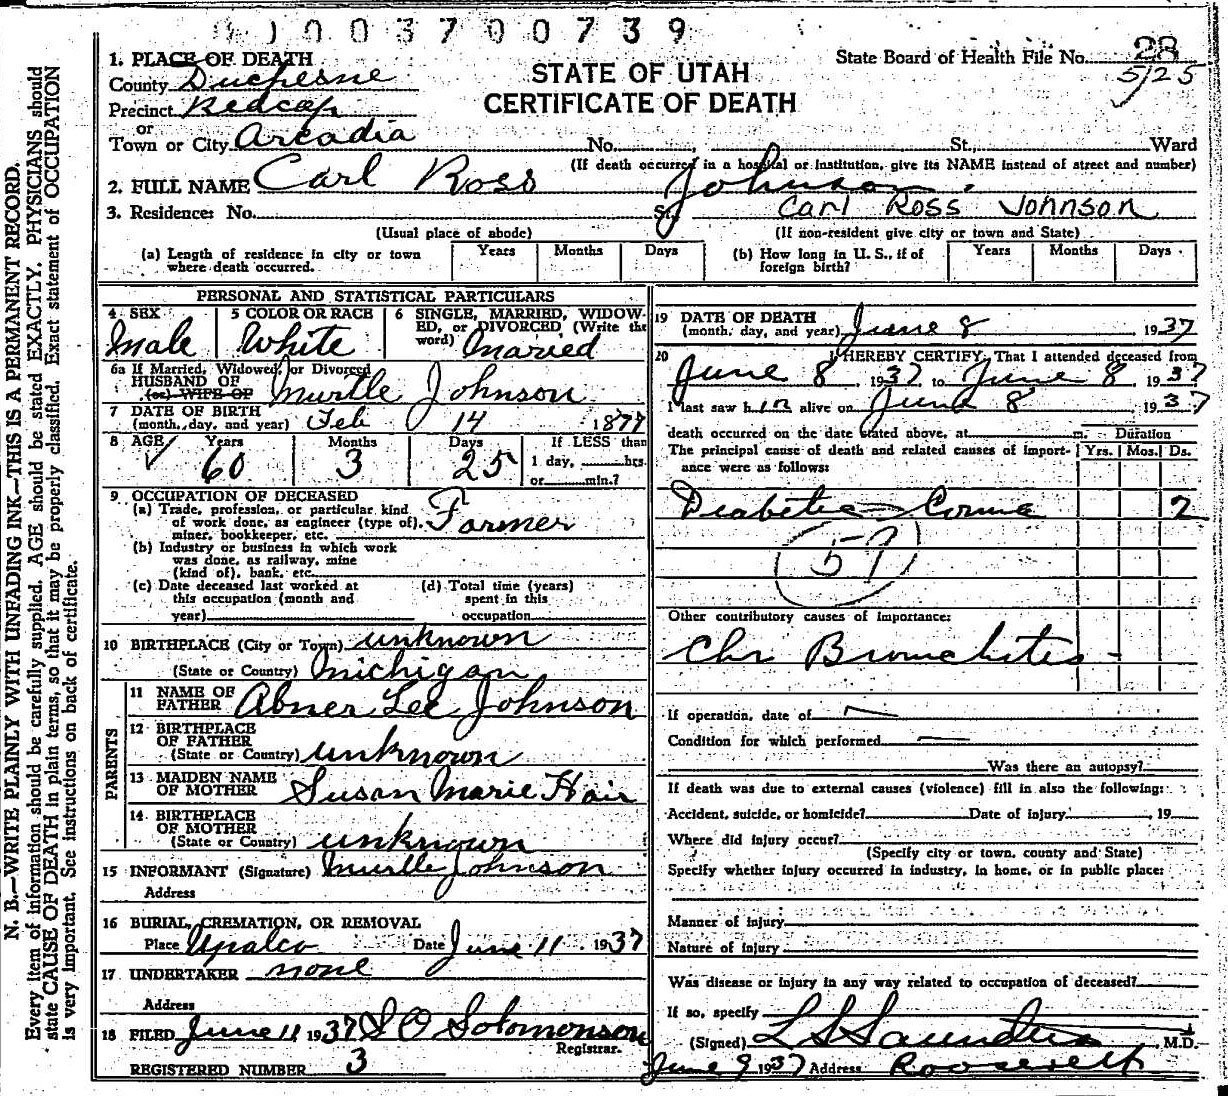 003700739
1. PLACE OF DEATH
State Board of Health File No. 28
County Duchesne
STATE OF UTAH
5/25
Precinct Redcap
CERTIFICATE OF DEATH
or
Town or City Arcadia No. , St., Ward
(If death occurred in a hospital or institution, give its NAME instead of street and number)
2. FULL NAME Carl Ross Johnson.
3. Residence: No. St. Carl Ross Johnson
(Usual place of abode) (If non-resident give city or town and State)
(a) Length of residence in city or town where death occurred. Years Months Days
(b) How long in U. S., if of foreign birth? Years Months Days
PERSONAL AND STATISTICAL PARTICULARS
4 SEX Male
5 COLOR OR RACE White
6 SINGLE, MARRIED, WIDOWED, or DIVORCED (Write the word) Maried
6a If Married, Widowed, or Divorced
HUSBAND OF
(or) WIFE OF Murtle Johnson
7 DATE OF BIRTH
(month, day, and year) Feb 14 1877
8 AGE Years 60 Months 3 Days 25
If LESS than
1 day, hrs.
or min.?
9 OCCUPATION OF DECEASED
(a) Trade, profession, or particular kind
of work done, as engineer (type of), Farmer
miner, bookkeeper, etc.
(b) Industry or business in which work
was done, as railway, mine
(kind of), bank, etc.
(c) Date deceased last worked at
this occupation (month and
year)
(d) Total time (years)
spent in this
occupation
10 BIRTHPLACE (City or Town) unknown
(State or Country) Michigan
PARENTS
11 NAME OF
FATHER Abner Lee Johnson
12 BIRTHPLACE
OF FATHER
(State or Country) unknown
13 MAIDEN NAME
OF MOTHER Susan Marie Hair
14 BIRTHPLACE
OF MOTHER
(State or Country) unknown
15 INFORMANT (Signature) Murtle Johnson
Address
16 BURIAL, CREMATION, OR REMOVAL
Place Upalco Date June 11 1937
17 UNDERTAKER none
Address
18 FILED June 11 1937 S O Solomonson
Registrar.
REGISTERED NUMBER 3
19 DATE OF DEATH
(month, day, and year) June 8, 1937
20 I HEREBY CERTIFY, That I attended deceased from
June 8, 1937 to June 8, 1937
I last saw him alive on June 8 1937
death occurred on the date stated above, at m.
Duration
The principal cause of death and related causes of importance were as follows:
Yrs. Mos. Ds.
Diabetic Coma 2
59
Other contributory causes of importance:
Chr Bronchitis -
If operation, date of —
Condition for which performed —
Was there an autopsy?
If death was due to external causes (violence) fill in also the following:
Accident, suicide, or homicide? Date of injury , 19
Where did injury occur?
(Specify city or town, county and State)
Specify whether injury occurred in industry, in home, or in public place:
Manner of injury
Nature of injury
Was disease or injury in any way related to occupation of deceased?
If so, specify
(Signed) L S Saunders, M.D.
June 9 1937 Address Roosevelt
N. B.—WRITE PLAINLY WITH UNFADING INK—THIS IS A PERMANENT RECORD.
Every item of information should be carefully supplied. AGE should be stated EXACTLY. PHYSICIANS should
state CAUSE OF DEATH in plain terms, so that it may be properly classified. Exact statement of OCCUPATION
is very important. See instructions on back of certificate.